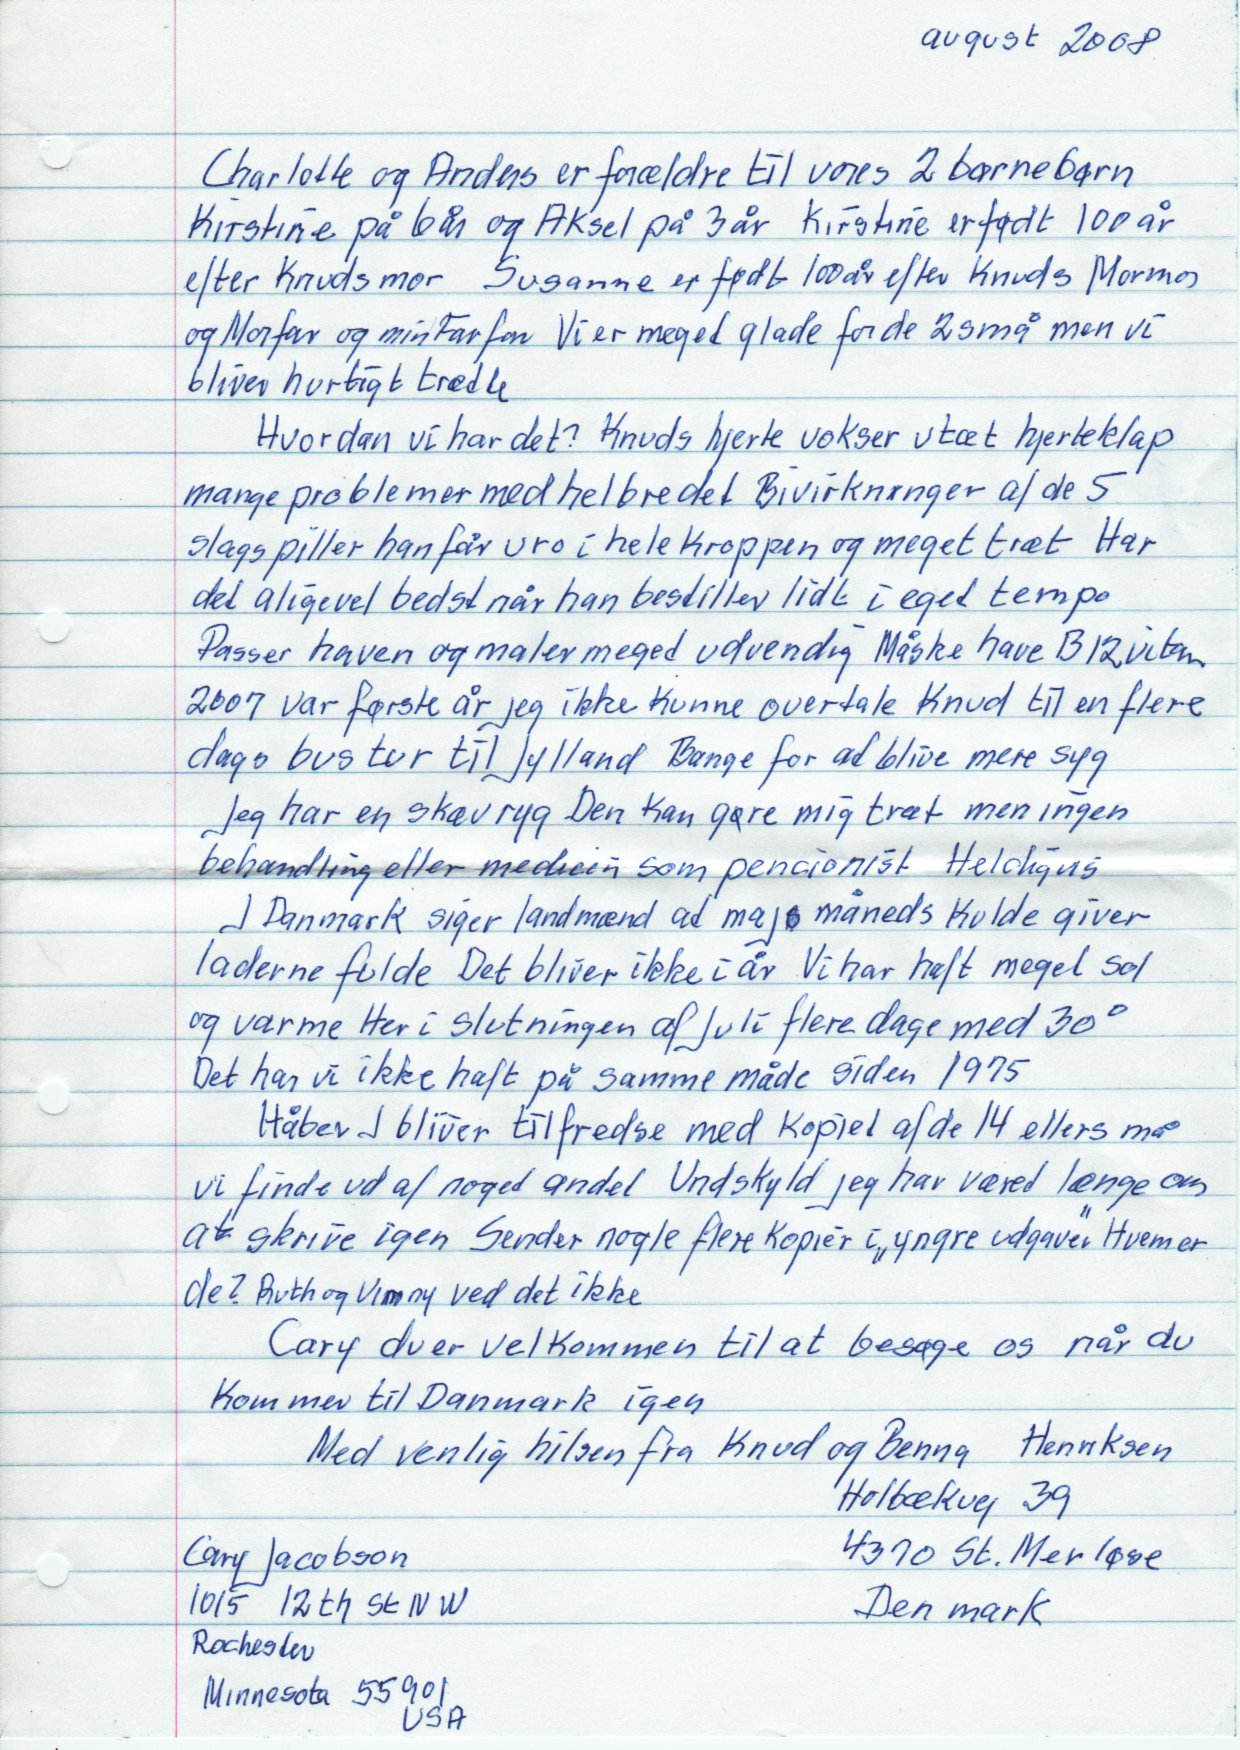 august 2008
Charlotte og Anders er forældre til vores 2 børnebørn
Kirstine på 6 år og Aksel på 3 år Kirstine er født 100 år
efter Knuds mor Susanne er født 100 år efter Knuds Mormor
og Morfar og min Farfar Vi er meget glade for de 2 små men vi
bliver hurtigt trætte
Hvordan vi har det? Knuds hjerte vokser utæt hjerteklap
mange problemer med helbredet Bivirkninger af de 5
slags piller han får uro i hele kroppen og meget træt Har
det aligevel bedst når han bestiller lidt i eget tempo
Passer haven og maler meget udvendig Måske have B12 vitam
2007 var første år jeg ikke kunne overtale Knud til en flere
dags bus tur til Jylland Bange for at blive mere syg
Jeg har en skæv ryg Den kan gøre mig træt men ingen
behandling eller medicin som pencionist Heldigvis
I Danmark siger landmænd at majs måneds kulde giver
laderne fulde Det bliver ikke i år Vi har haft meget sol
og varme Her i slutningen af juli flere dage med 30°
Det har vi ikke haft på samme måde siden 1975
Håber I bliver tilfredse med kopiet af de 14 ellers må
vi finde ud af noget andet Undskyld jeg har været længe om
at skrive igen Sender nogle flere kopier i „yngre udgave" Hvem er
de? Ruth og Vimmy ved det ikke
Cary du er velkommen til at besøge os når du
kommer til Danmark igen
Med venlig hilsen fra Knud og Benny Henriksen
Holbækvej 39
4370 St. Merløse
Denmark
Cary Jacobson
1015 12th St NW
Rochester
Minnesota 55901
USA